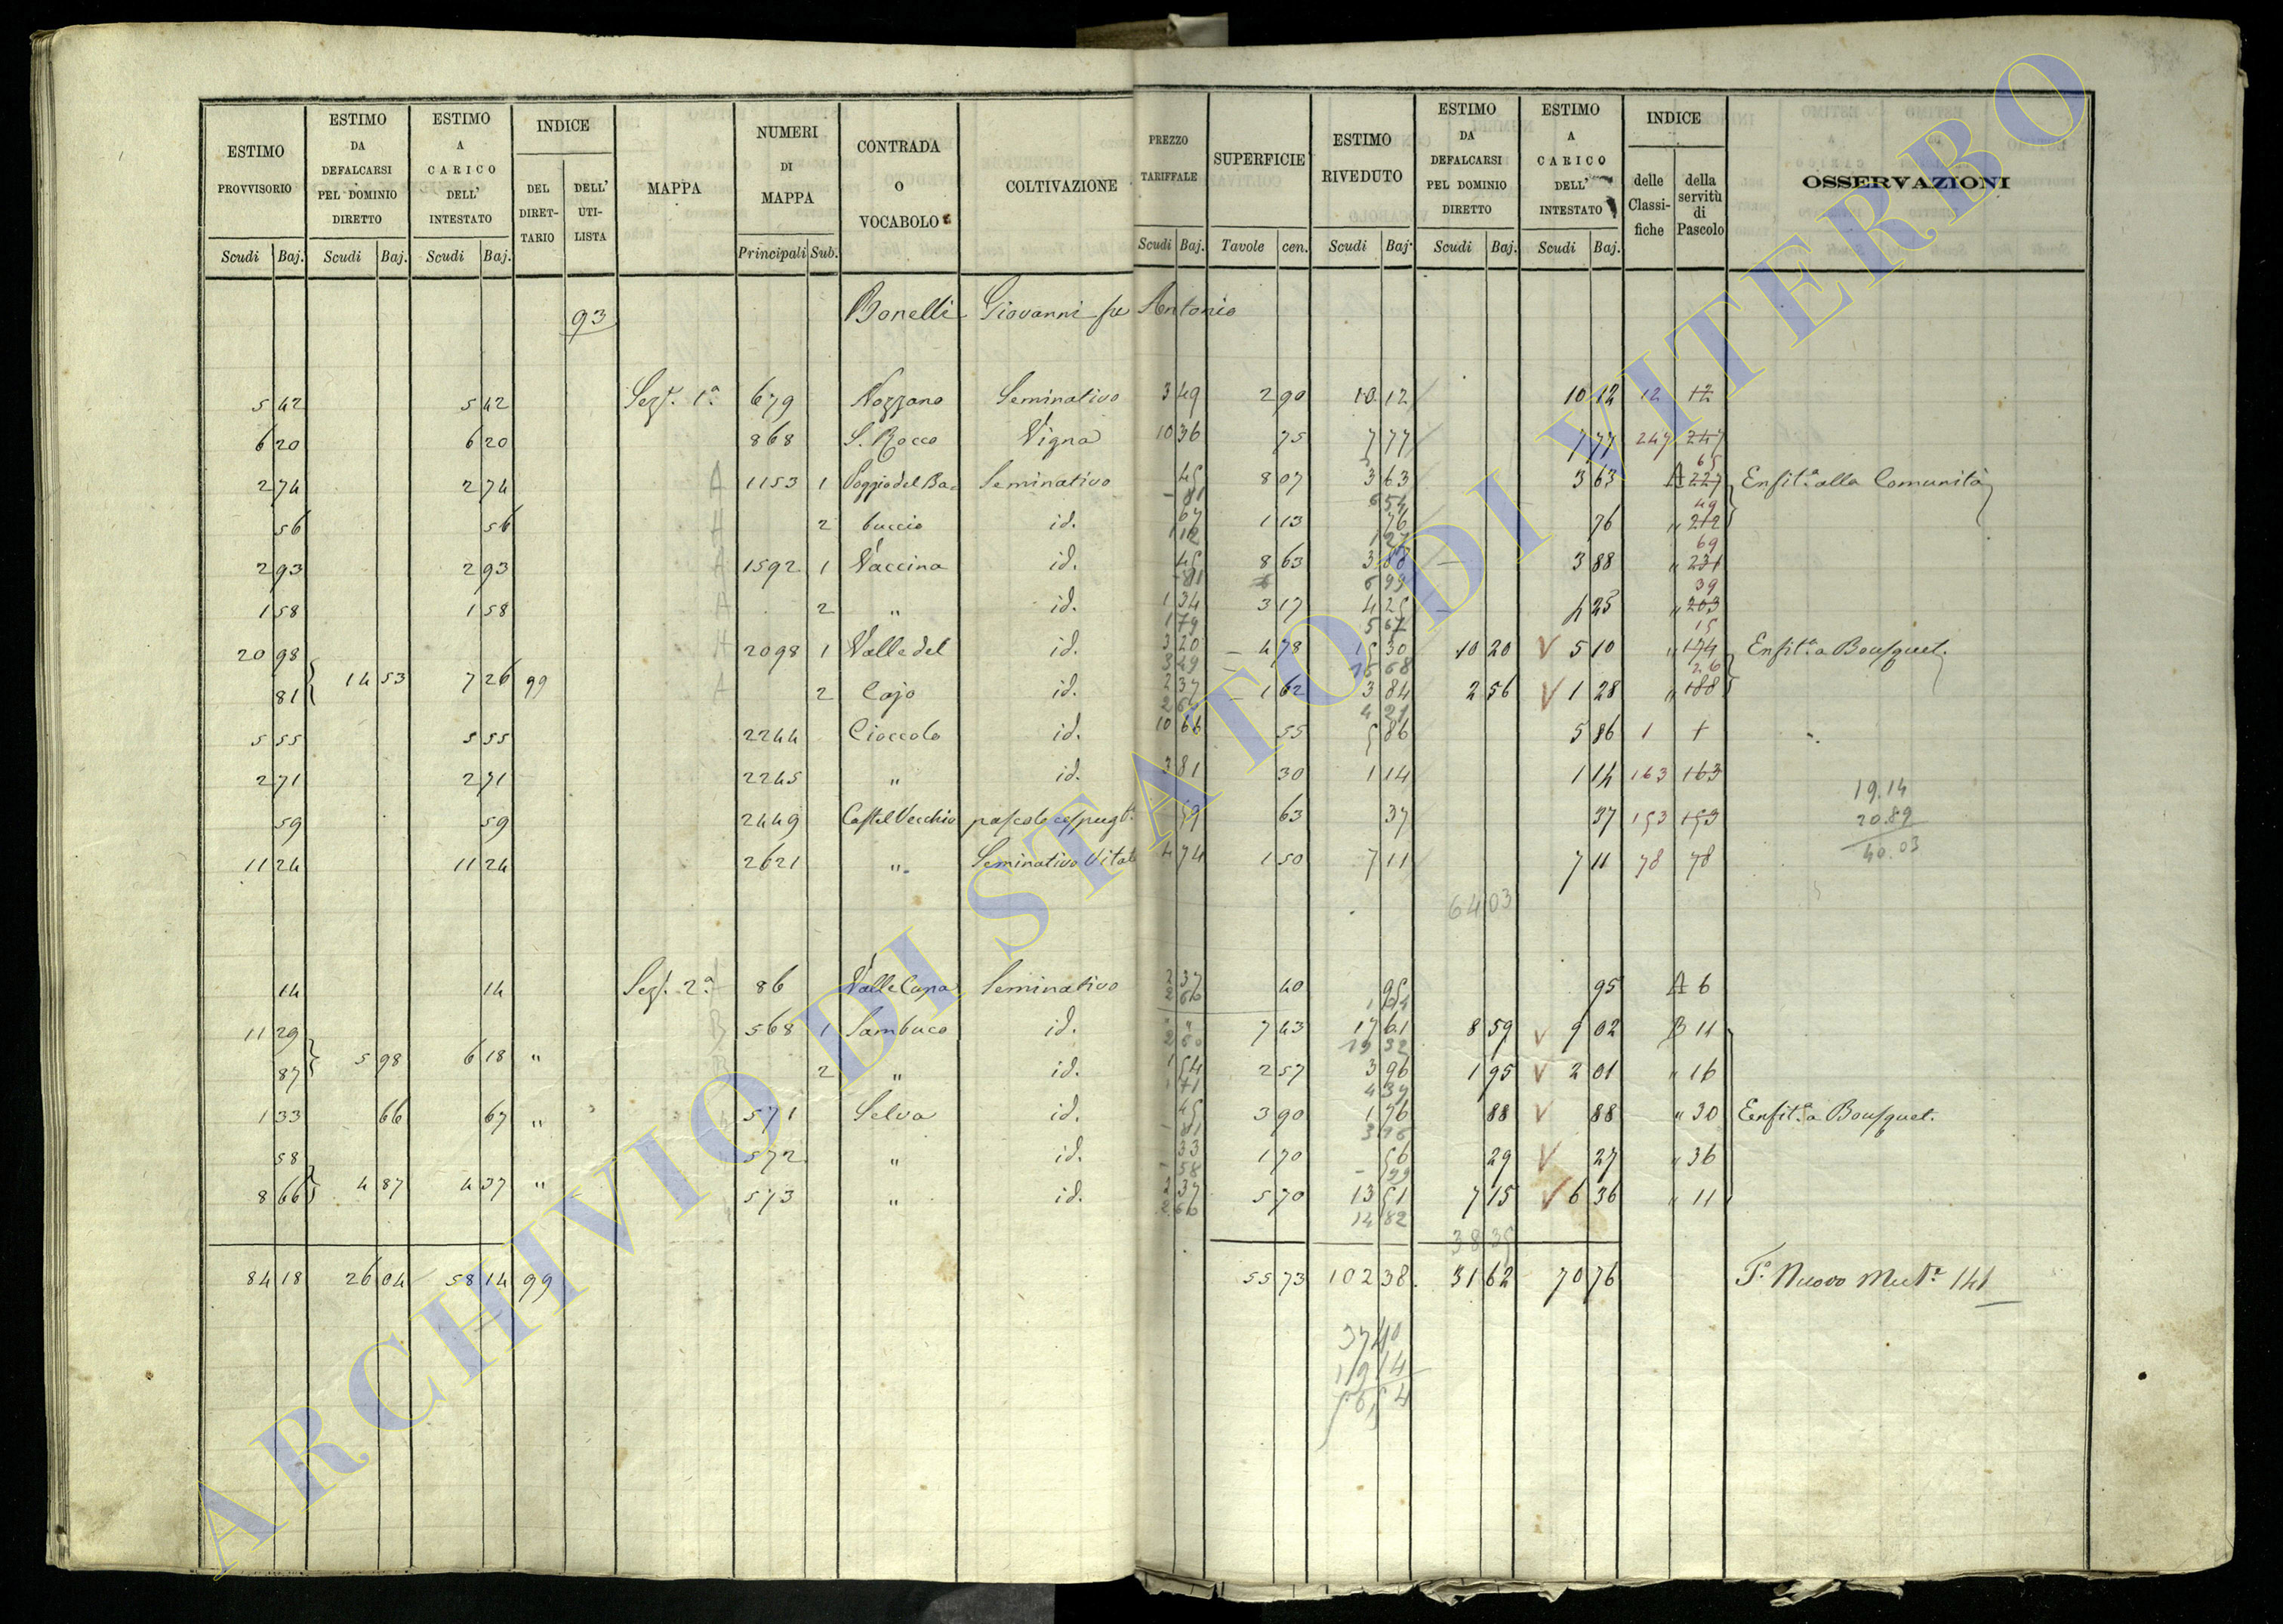 ESTIMO PROVVISORIO Scudi Baj.
ESTIMO DA DEFALCARSI PEL DOMINIO DIRETTO Scudi Baj.
ESTIMO A CARICO DELL' INTESTATO Scudi Baj.
INDICE DEL DIRET-TARIO DELL' UTI-LISTA
MAPPA
NUMERI DI MAPPA Principali Sub.
CONTRADA O VOCABOLO
COLTIVAZIONE
PREZZO TARIFFALE Scudi Baj.
SUPERFICIE Tavole cen.
ESTIMO RIVEDUTO Scudi Baj.
ESTIMO DA DEFALCARSI PEL DOMINIO DIRETTO Scudi Baj.
ESTIMO A CARICO DELL' INTESTATO Scudi Baj.
INDICE delle Classi-fiche della servitù di Pascolo
OSSERVAZIONI
93 Bonelli Giovanni fu Antonio
5 42 5 42 Sezе. 1ª 679 Nozzano Seminativo 3 49 2 90 10 12 10 12 12 12
6 20 6 20 868 S. Rocco Vigna 10 36 75 7 77 7 77 247 247
2 74 2 74 A 1153 1 Poggio del Ba= Seminativo 45 8 07 3 63 3 63 A 227 65 Enfit.ª alla Comunità
81 6 54
56 56 A 2 cuccio id. 67 1 13 76 76 " 212 49
1 12 1 27
2 93 2 93 A 1592 1 Vaccina id. 45 8 63 3 88 3 88 " 231 69
81 6 99
1 58 1 58 A 2 " id. 1 34 3 17 4 25 4 25 " 203 39
1 79 5 67
20 98 A 2098 1 Valle del id. 3 20 4 78 15 30 10 20 V 5 10 " 174 15 Enfit.ª a Bousquet.
14 53 7 26 99 3 49 16 68
81 A 2 Cajo id. 2 37 1 62 3 84 2 56 V 1 28 " 188 26
2 60 4 21
5 55 5 55 2244 Cioccolo id. 10 66 55 5 86 5 86 1 1
2 71 2 71 2245 " id. 3 81 30 1 14 1 14 163 163
19.14
59 59 2449 Castel Vecchio pascolo cespugl.º 59 63 37 37 153 153
20.89
11 24 11 24 2621 " Seminativo Vitato 4 74 1 50 7 11 7 11 78 78
40.03
64 03
14 14 Sez. 2ª 86 Valle Cupa Seminativo 2 37 40 95 95 A 6
2 60 1 04
11 29 B 568 1 Sambuco id. " " 7 43 17 61 8 59 V 9 02 B 11
5 98 6 18 " 2 60 19 32
87 B 2 " id. 1 54 2 57 3 96 1 95 V 2 01 " 16
1 71 4 39
1 33 66 67 " 571 Selva id. 45 3 90 1 76 88 V 88 " 30 Enfit.ª a Bousquet.
81 3 16
58 572 " id. 33 1 70 56 29 V 27 " 36
4 87 4 37 " 58 99
8 66 573 " id. 2 37 5 70 13 51 7 15 V 6 36 " 11
2 60 14 82
38 35
84 18 26 04 58 14 99 55 73 102 38 31 62 70 76 T.º Nuovo Mut.e 141
37 40
19 14
56 54
ARCHIVIO DI STATO DI VITERBO